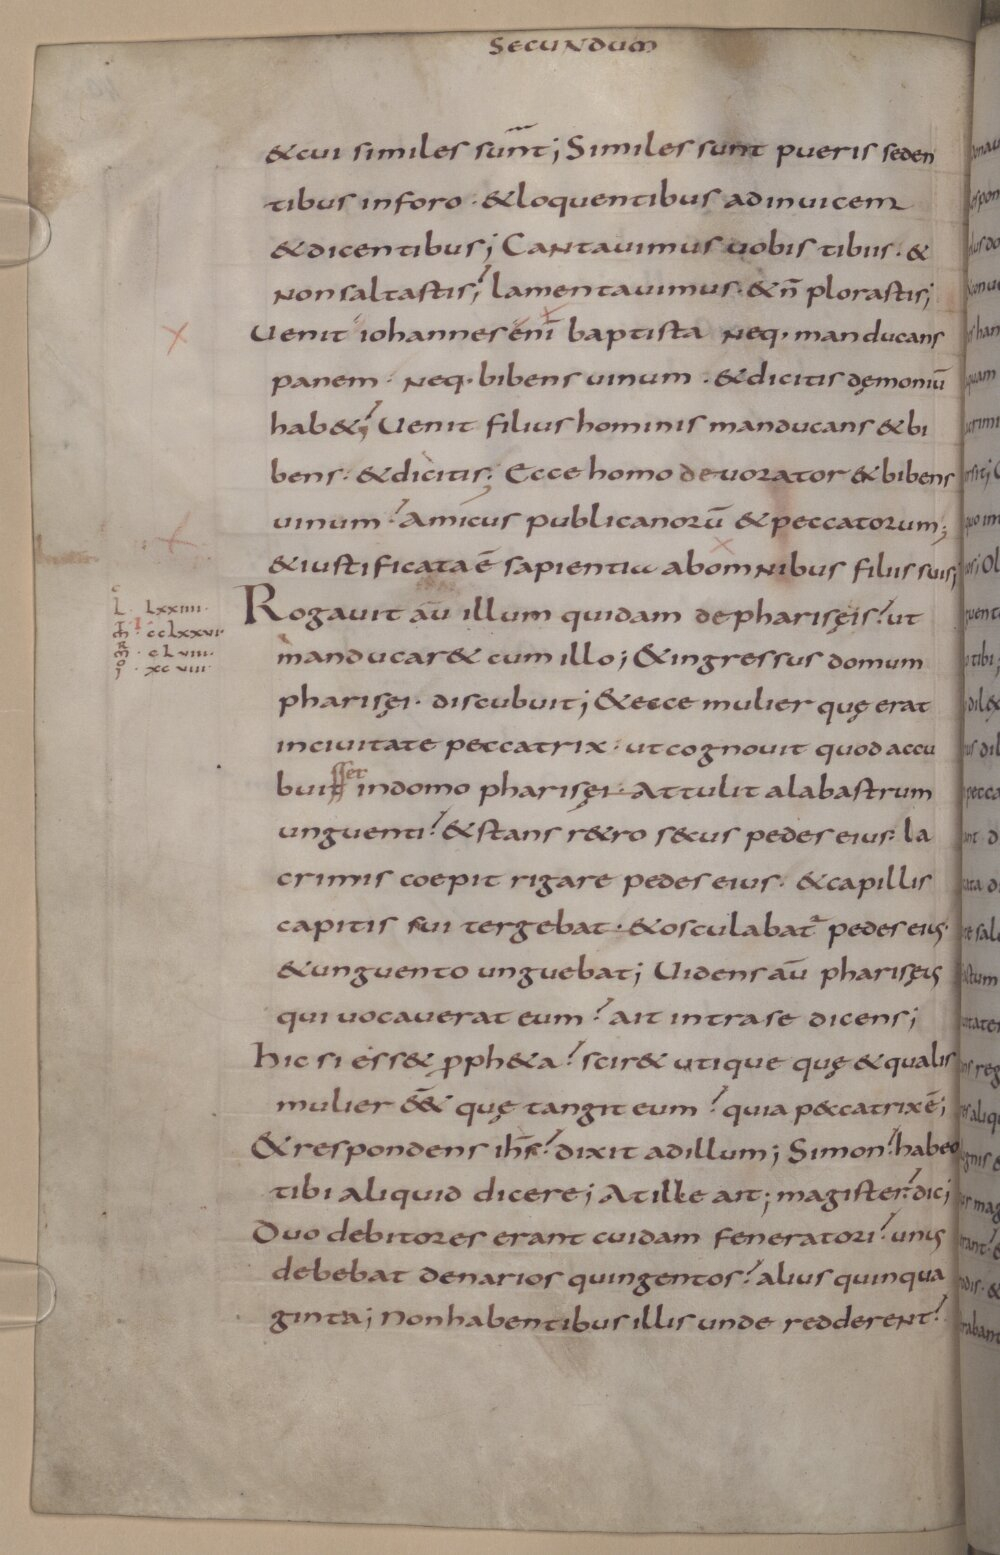 SECUNDUM
&cui similes sunt; Similes sunt pueris seden
tibus inforo · &loquentibus adinuicem
&dicentibus; Cantauimus uobis tibiis · &
non saltastis; lamentauimus · & n̄ plorastis;
Uenit iohannes enī baptista neq· manducans
panem · neq· bibens uinum · &dicitis dęmoniū
hab&; Uenit filius hominis manducans & bi
bens · &dicitis; Ecce homo deuorator & bibens
uinum amicus publicanorū & peccatorum;
&iustificata ē sapientia abomnibus filiis suis;
L · Lxxiiii ·
ccLxxvi
cLviii ·
xcviii
Rogauit aū illum quidam depharisęis ut
manducar& cum illo; &ingressus domum
pharisęi · discubuit; &ecce mulier quę erat
inciuitate peccatrix · ut cognouit quod accu
buit sset indomo pharisęi · attulit alabastrum
unguenti &stans r&ro secus pedes eius · la
crimis coepit rigare pedes eius · &capillis
capitis sui tergebat · &osculabat pedes eius ·
&unguento unguebat; Uidens aū pharisęus
qui uocauerat eum ait intrase dicens;
hic si ess& proph&a scir& utique quę &qualis
mulier quę tangit eum quia peccatrix ē;
&respondens ihs dixit adillum; Simon habeo
tibi aliquid dicere; Atille ait; magister dic;
Duo debitores erant cuidam feneratori unus
debebat denarios quingentos alius quinqua
ginta; Non habentibus illis unde redderent